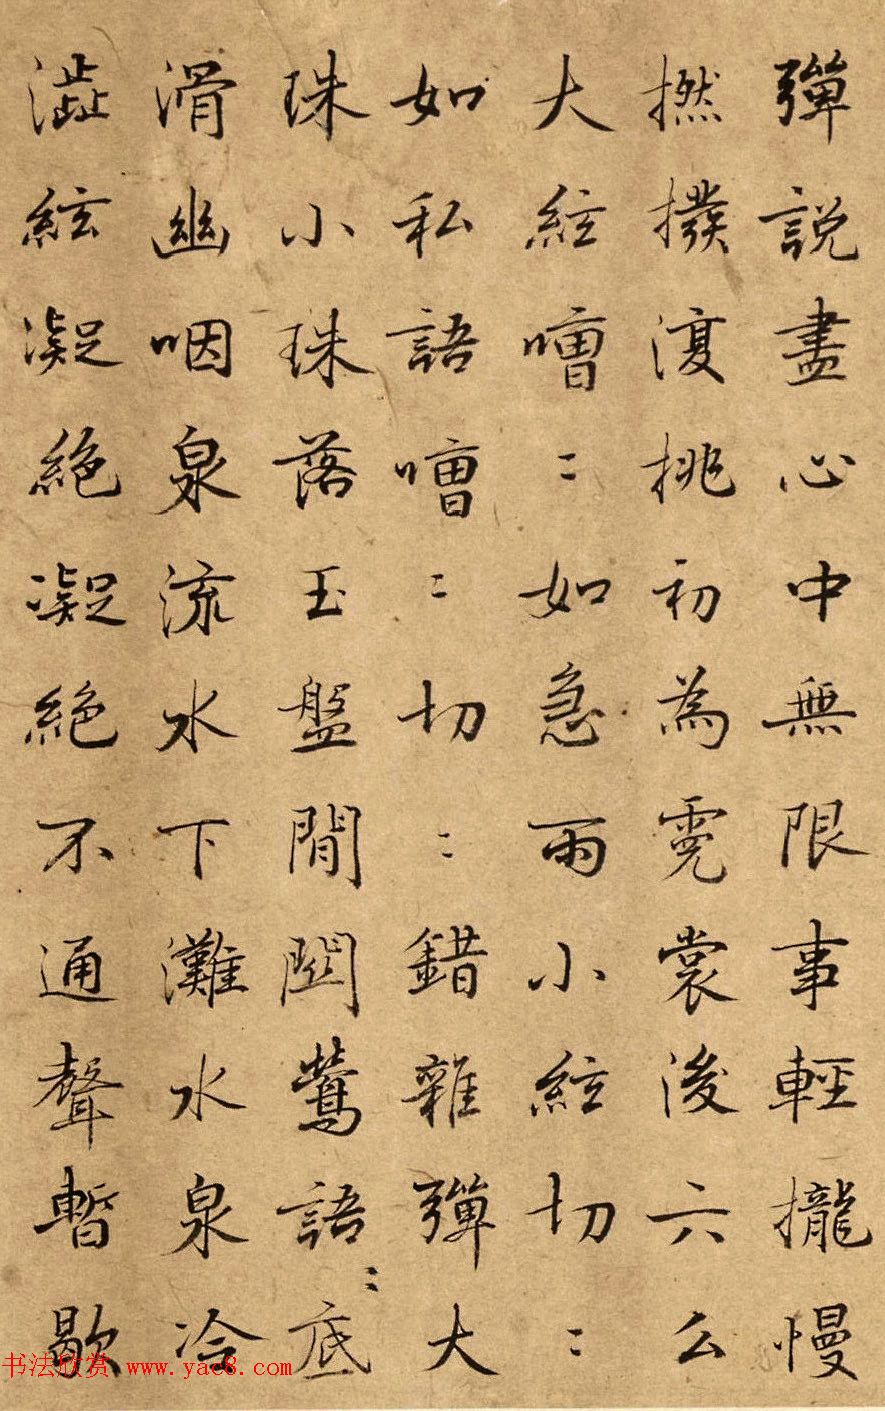 彈說盡心中無限事輕攏慢
撚撥復挑初為霓裳後六么
大絃嘈〻如急雨小絃切〻
如私語嘈〻切〻錯雜彈大
珠小珠落玉盤間關鶯語底
滑幽咽泉流水下灘水泉冷
澁絃凝絕凝絕不通聲暫歇
书法欣赏 www.yac8.com